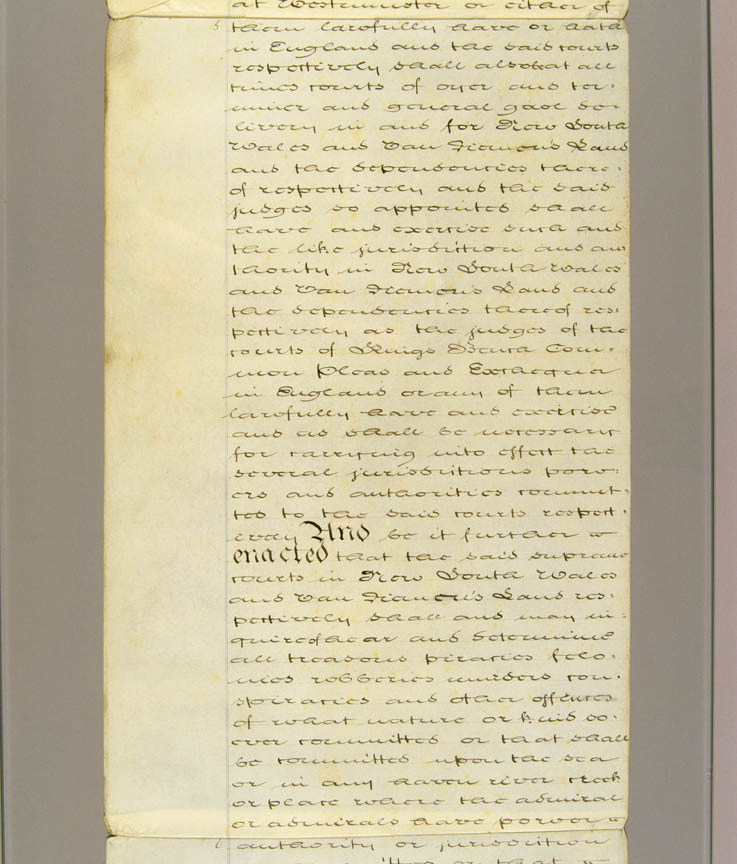 at Westminster or either of
5 them lawfully have or hath
in England and the said courts
respectively shall also at all
times courts of oyer and ter-
miner and general gaol de-
livery in and for New South
Wales and Van Diemen's Land
and the dependencies there-
of respectively and the said
judges so appointed shall
have and exercise such and
the like jurisdiction and au
thority in New South Wales
and Van Diemen's Land and
the dependencies thereof res-
pectively as the judges of the
courts of Kings Bench Com-
mon Pleas and Exchequer
in England or any of them
lawfully have and exercise
and as shall be necessary
for carrying into effect the
several jurisdictions pow-
ers and authorities commit-
ted to the said courts respect-
ively And be it further
enacted that the said supreme
courts in New South Wales
and Van Diemen's Land res-
pectively shall and may in-
quire of hear and determine
all treasons piracies felo-
nies robberies murders con-
spiracies and other offences
of what nature or kind so-
ever committed or that shall
be committed upon the sea
or in any haven river creek
or place where the admiral
or admirals have power
6 authority or jurisdiction
or that